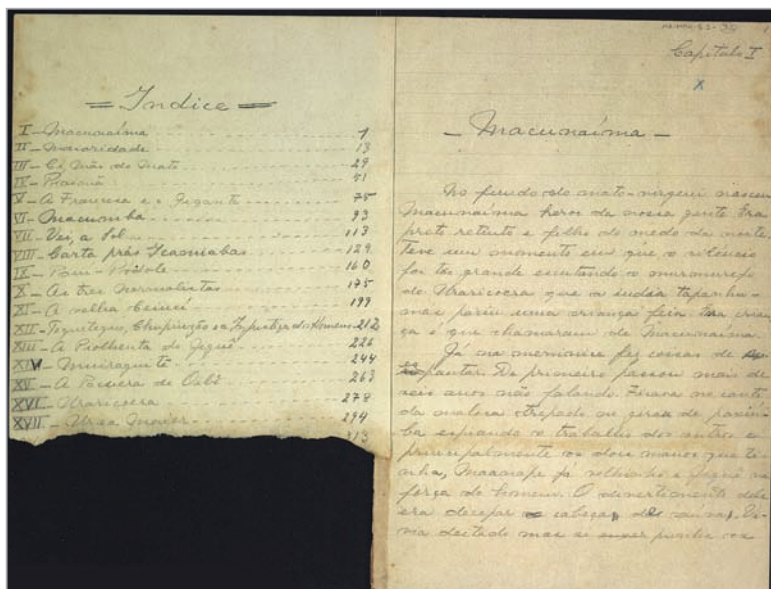 = Indice =
I - Macunaíma 1
II - Maioridade 13
III - Ci, Mãe do Mato 29
IV - Piaimã 51
V - A Francesa e o Gigante 75
VI - Macumba 93
VII - Vei, a Sol 113
VIII - Carta prás Icamiabas 129
IX - Pauí-Pódole 160
X - As tres normalistas 175
XI - A velha Ceiuci 199
XII - Tequeteque, Chupinzão e a Injustiça dos Homens 212
XIII - A Piolhenta do Jiguê 226
XIV - Muiraquitã 244
XV - A Pacuera de Oibê 263
XVI - Uraricoera 278
XVII - Ursa Maior 294
313
Capítulo I
X
- Macunaíma -
No fundo do mato-virgem nasceu
Macunaíma heroi da nossa gente. Era
preto retinto e filho do medo da noite.
Teve um momento em que o silêncio
foi tão grande escutando o murmurejo
do Uraricoera que a india tapanhu-
mas pariu uma criança feia. Essa crian
ça é que chamaram de Macunaíma.
Já na meninice fez cousas de
espantar. De primeiro passou mais de
seis anos não falando. Ficava no canto
da maloca trepado no girau de paxiu-
ba espiando o trabalho dos outros e
principalmente os dois manos que ti-
nha, Maanape já velhinho e Jiguê na
força do homem. O divertimento dele
era decepar cabeças de saúvas. Vi-
via deitado mas si punha os